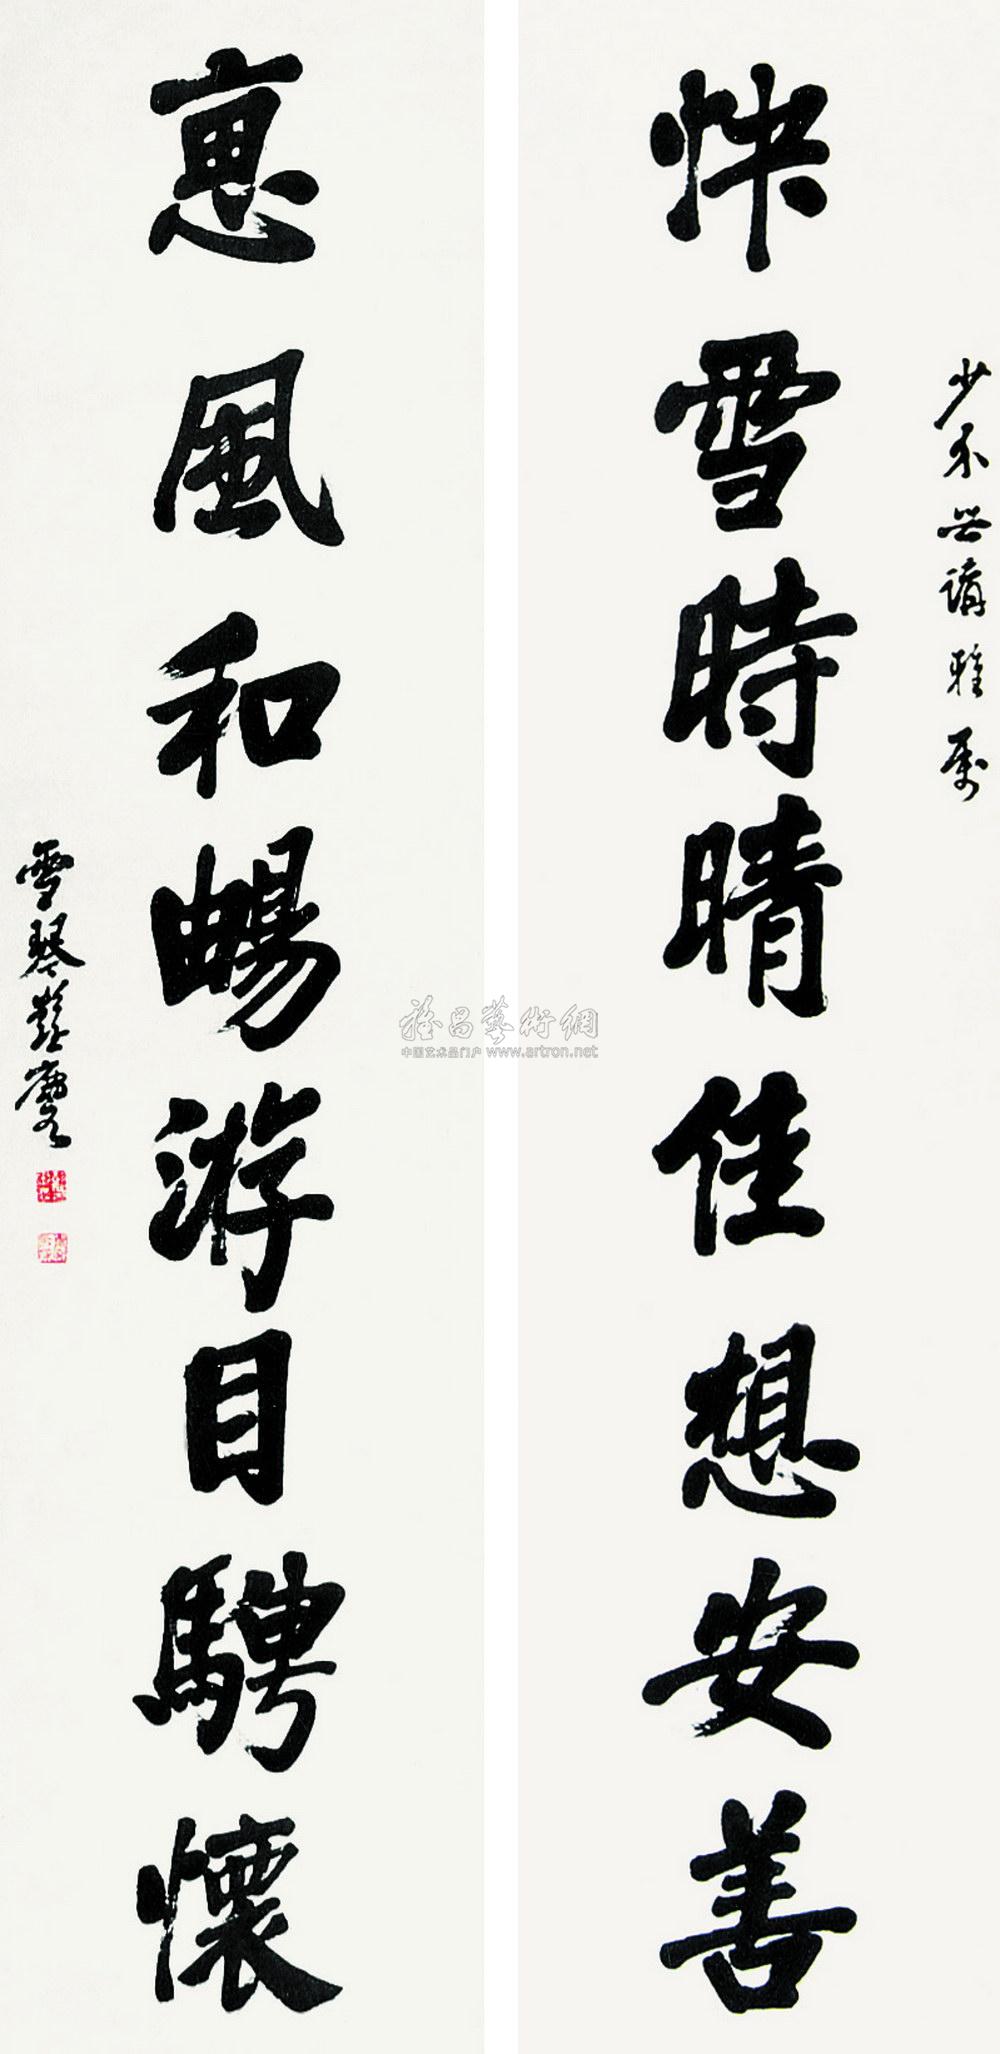 少禾世講雅屬
快雪時晴佳想安善
惠風和暢游目騁懷
雪琴彭玉麐
雅昌藝術網
中国艺术品门户 www.artron.net